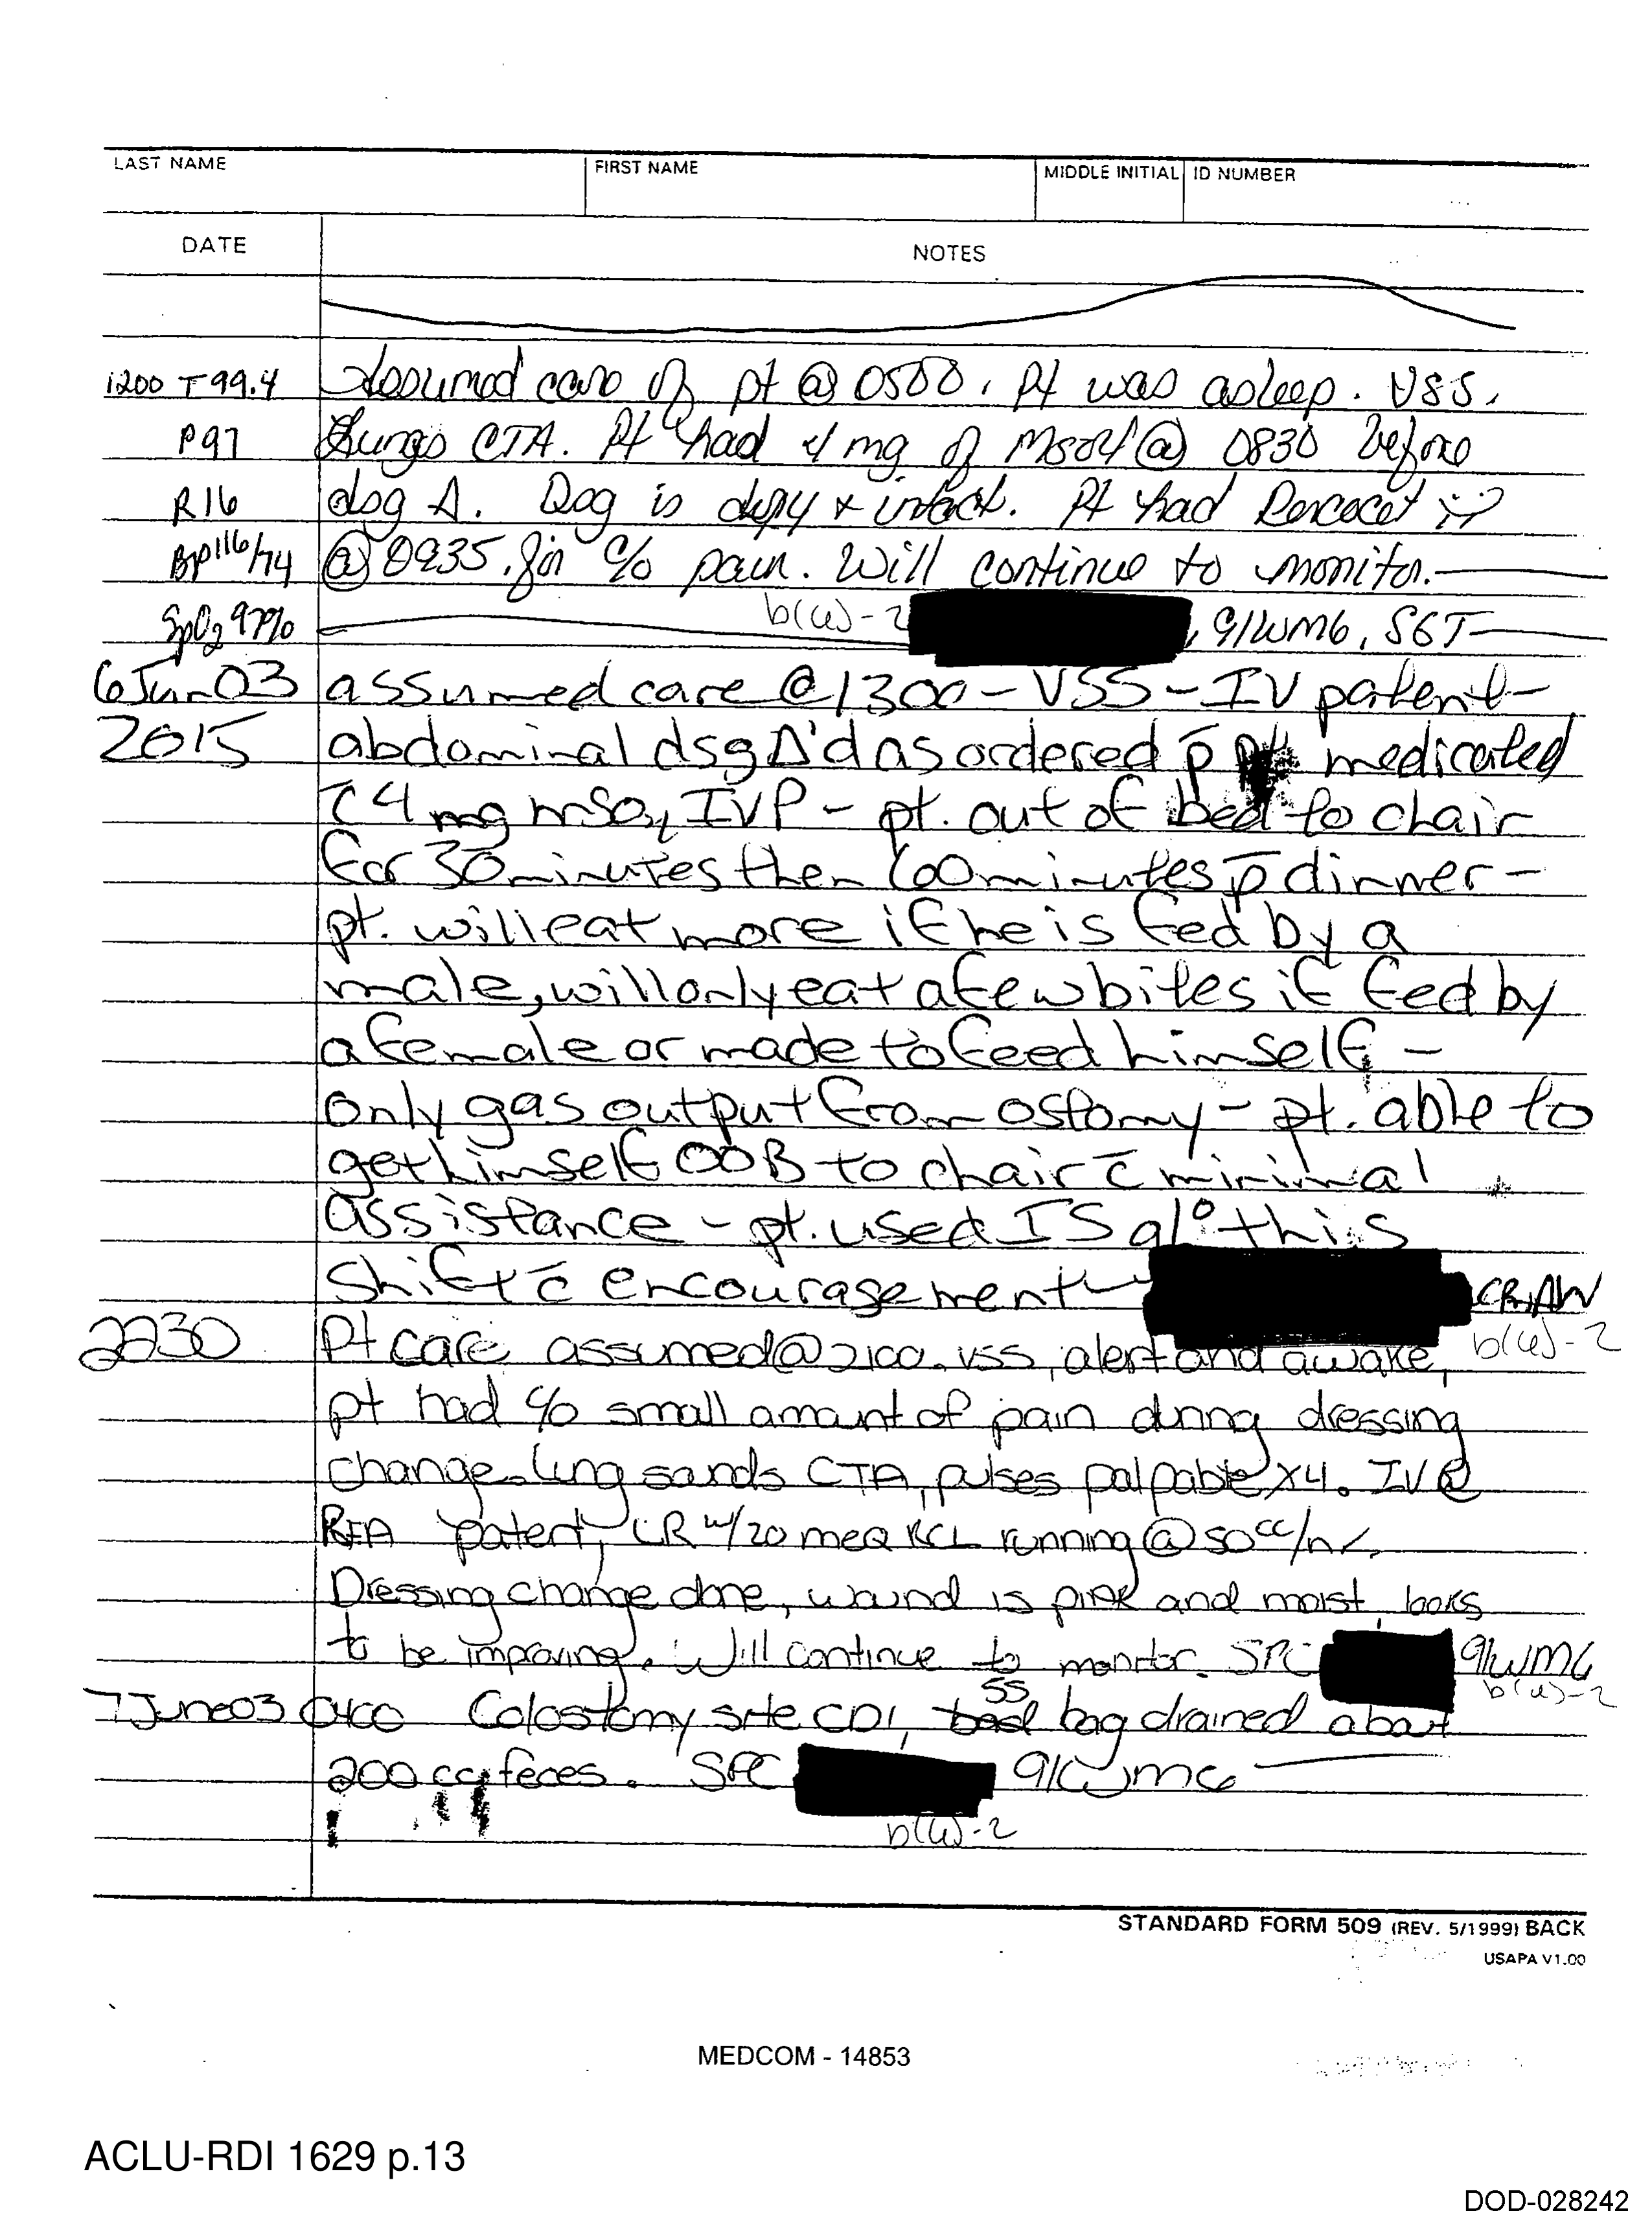 LAST NAME FIRST NAME MIDDLE INITIAL ID NUMBER
DATE NOTES
1200 T 99.4 Assumed care of pt @ 0500. Pt was asleep. VSS.
P 97 Lungs CTA. Pt had 4 mg of MSO4 @ 0830 before
R 16 dsg Δ. Dsg is dry + intact. Pt had Percocet
BP 116/74 @ 0935 for c/o pain. Will continue to monitor.
SpO2 97% b(6)-2 , 91WM6, SGT
6 Jun 03 assumed care @ 1300 - VSS - IV patent -
2015 abdominal dsg Δ'd as ordered p̄ pt medicated
c̄ 4 mg mSO4 IVP - pt. out of bed to chair
for 30 minutes then 60 minutes p̄ dinner -
pt. will eat more if he is fed by a
male, will only eat a few bites if fed by
a female or made to feed himself -
only gas output from ostomy - pt. able to
get himself OOB to chair c̄ minimal
assistance - pt. used IS q1° this
shift c̄ encouragement
b(6)-2
2230 Pt care assumed @ 2100. VSS, alert and awake,
pt had c/o small amount of pain during dressing
change. Lung sounds CTA, pulses palpable x4. IV @
RFA patent, LR w/20 meq KCL running @ 50cc/hr.
Dressing change done, wound is pink and moist, looks
to be improving. Will continue to monitor. SPC 91WM6
b(6)-2
7 June 03 0400 Colostomy site CDI, SS bag drained about
200 cc feces. SPC 91WM6
b(6)-2
STANDARD FORM 509 (REV. 5/1999) BACK
USAPA V1.00
MEDCOM - 14853
ACLU-RDI 1629 p.13
DOD-028242